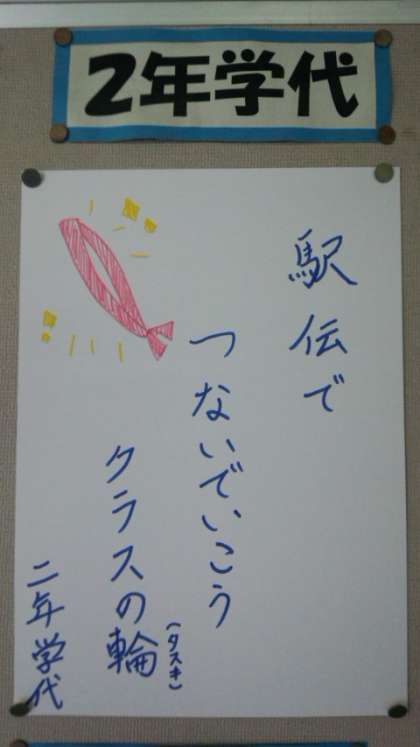 2年学代
駅伝で
つないでいこう
クラスの輪
(タスキ)
二年学代